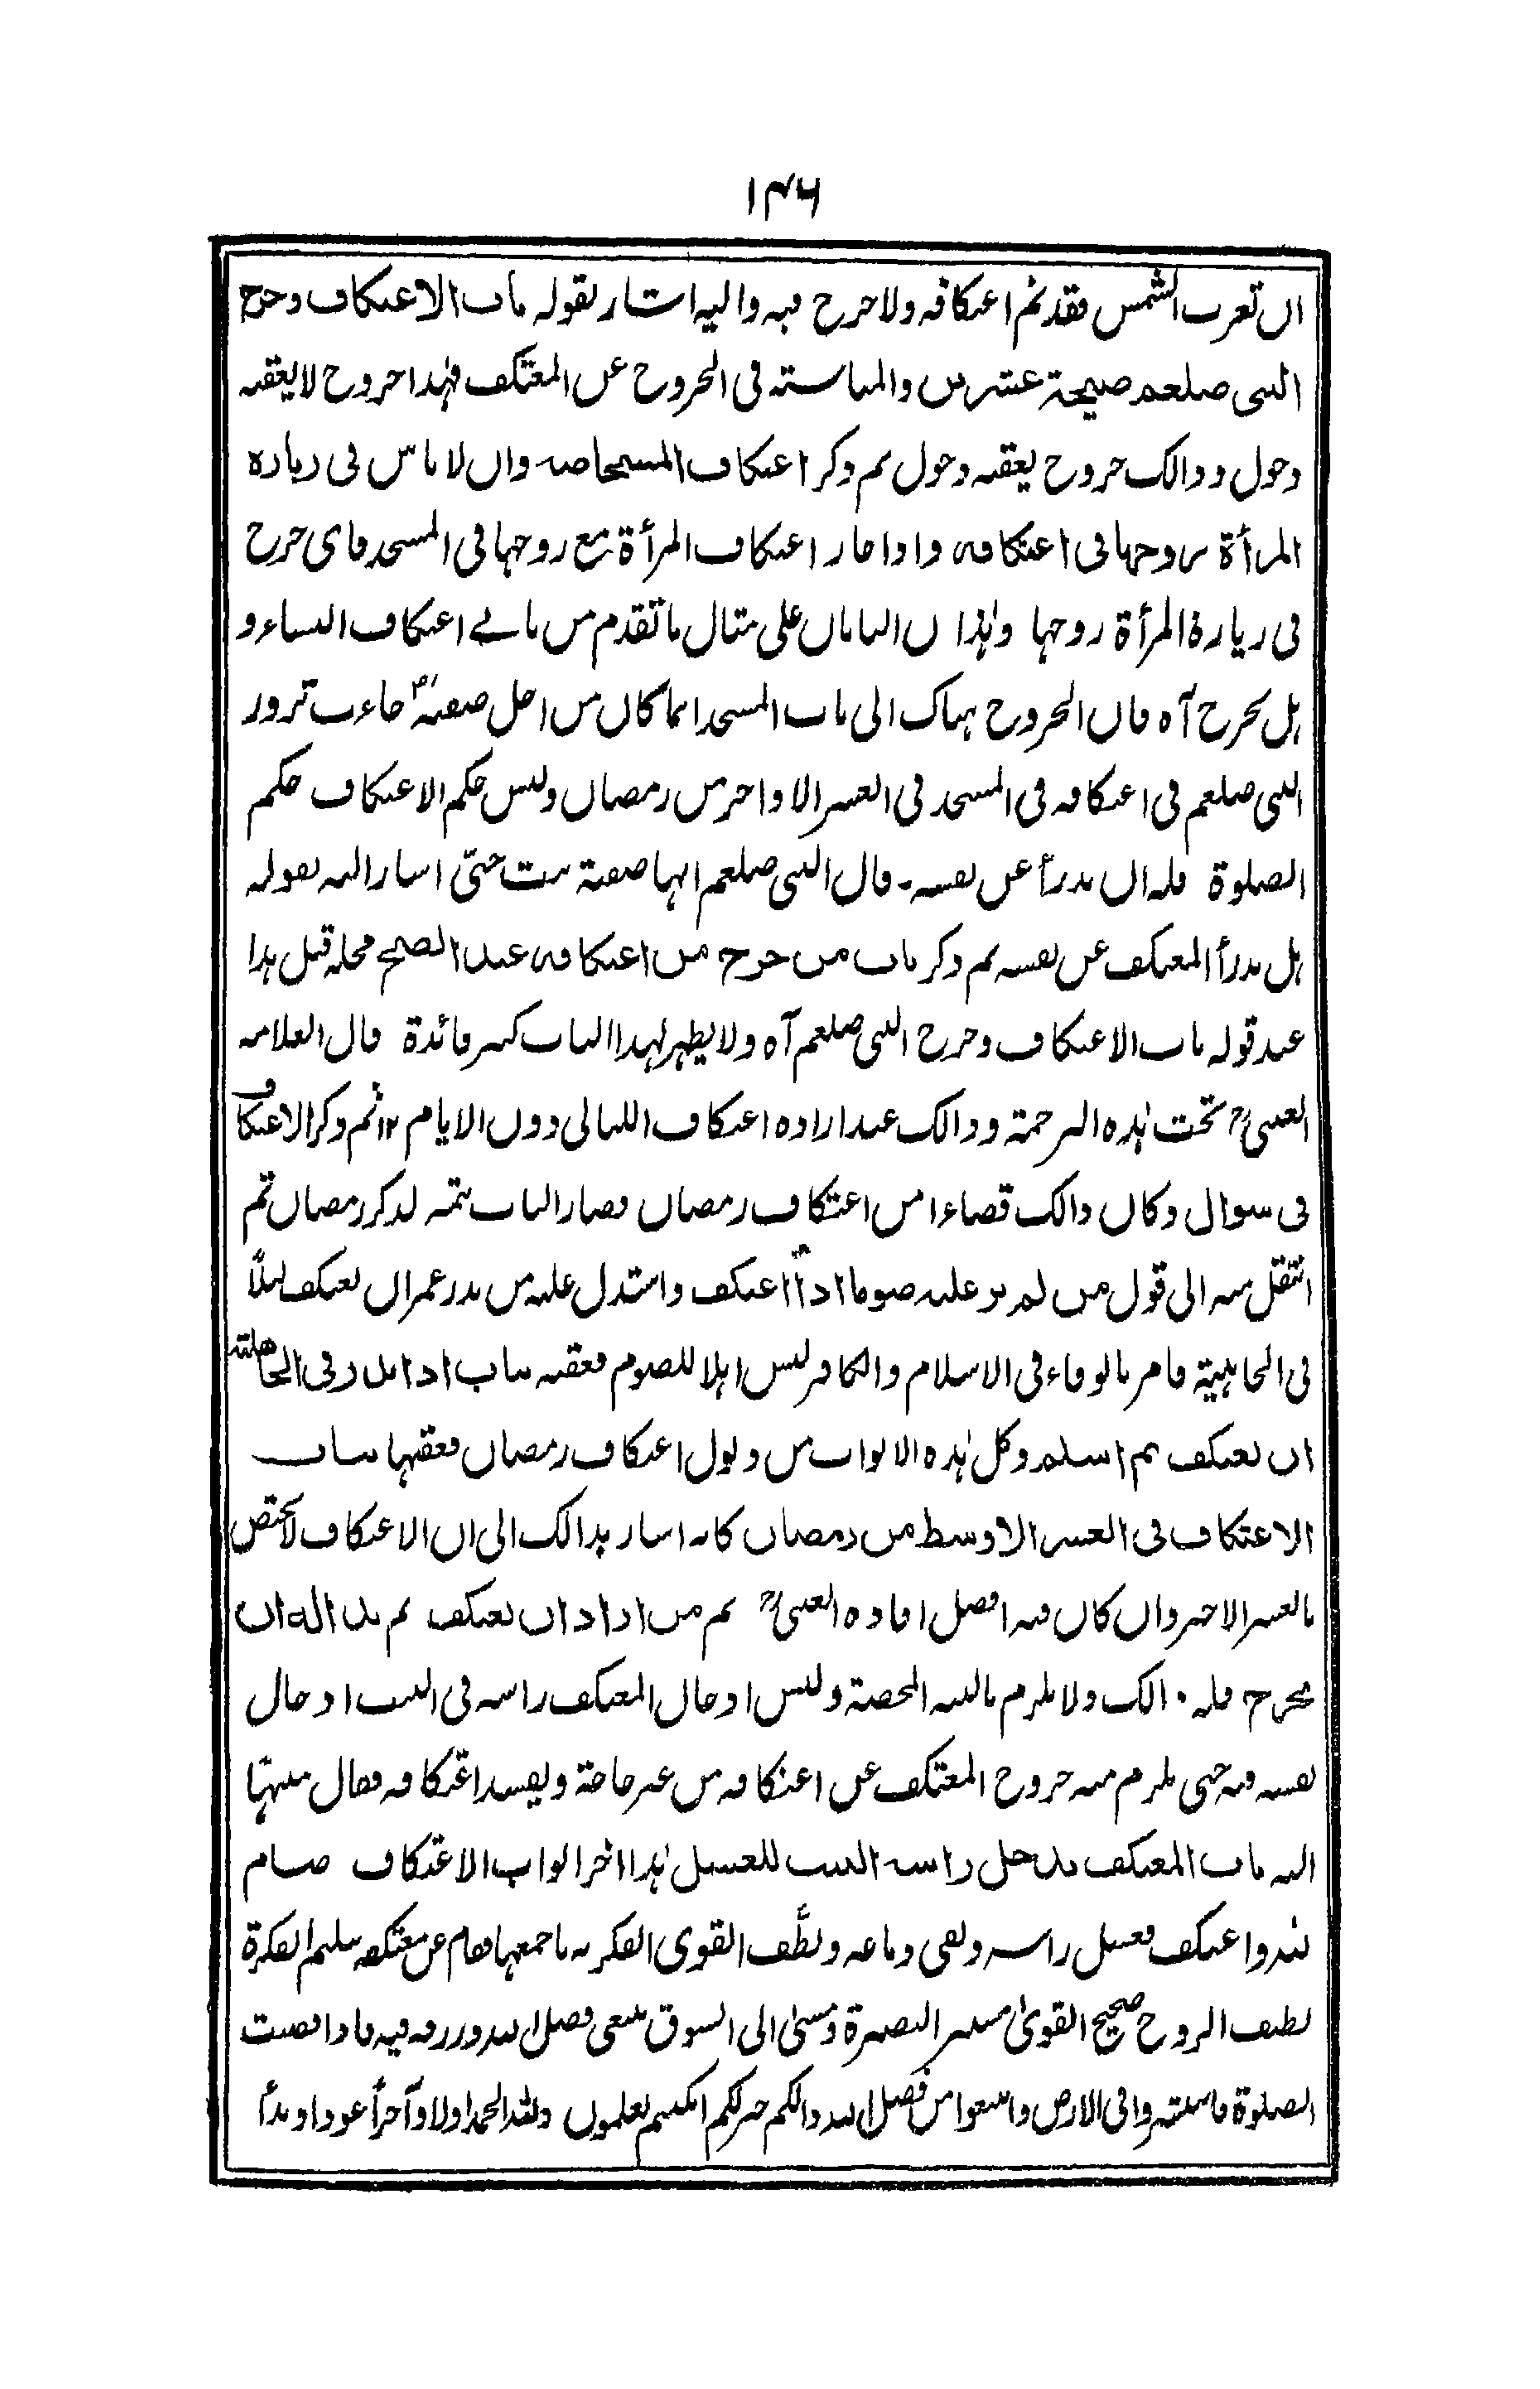 ١٣٦
ان تغرب الشمس فقد تم اعتكافه ولا حرج فيه واليه اشار بقوله باب الاعتكاف وخرج
النبى صلعم صبيحة عشرين والمناسبته فى الخروج عن المعتكف فهذا خروج لا يعقبه
دخول وذالك خروج يعقبه دخول ثم ذكر اعتكاف المستحاضه وان لا باس فى زياره
المرأة زوجها فى اعتكافه واذا جاز اعتكاف المرأة مع زوجها فى المسجد فاى حرج
فى زيارة المرأة زوجها وهذا ن البابان على مثال ما تقدم من باب اعتكاف النساء و
هل يخرج آه فان الخروج هناك الى باب المسجد انما كان من اجل صفيه جاءت تزور
النبى صلعم فى اعتكافه فى المسجد فى العشر الاواخر من رمضان وليس حكم الاعتكاف حكم
الصلوة فله ان يدرأ عن نفسه۔ قال النبى صلعم انها صفية بنت حيّى اشار اليه بقوله
هل يدرأ المعتكف عن نفسه ثم ذكر باب من خرج من اعتكافه عند الصبح محله قبل هذا
عند قوله باب الاعتكاف وخرج النبى صلعم آه ولا يظهر لهذا الباب كثير فائدة قال العلامه
العينى تحت هذه الترجمة وذالك عند اراده اعتكاف الليالى دون الايام ١٢ ثم ذكر الاعتكاف
فى شوال وكان ذالك قضاءا من اعتكاف رمضان فصار الباب تتمه لذكر رمضان ثم
انتقل منه الى قول من لم ير عليه صوما اذا اعتكف واستدل عليه من نذر عمر ان يعتكف ليلاً
فى الجاهلية فامر بالوفاء فى الاسلام والكافر ليس اهلا للصوم فعقبه بباب اذا نذر فى الجاهلية
ان يعتكف ثم اسلم وكل هذه الابواب من ذيول اعتكاف رمضان فعقبها بباب
الاعتكاف فى العشر الاوسط من رمضان كانه اشار بذالك الى ان الاعتكاف لا يختص
بالعشر الاخير وان كان فيه افضل افاده العينى ثم من اراد ان يعتكف ثم بدا له ان
يخرج فله ذالك ولا يلزم بالنيه المحضة وليس ادخال المعتكف راسه فى البيت ادخال
نفسه فيه حتى يلزم منه خروج المعتكف عن اعتكافه من غير حاجة ويفسد اعتكافه فقال منبهًا
اليه باب المعتكف يدخل راسه البيت للغسل هذا اخر ابواب الاعتكاف صام
لله واعتكف فغسل راسه ونقى دماغه ولطَّف القوى الفكريه باجمعها فقام عن معتكفه سليم الفكرة
لطيف الروح صحيح القوىٰ منير البصيرة ومشىٰ الى السوق يبتغى فضل الله ورزقه فيه فاذا قضيت
الصلوة فانتشروا فى الارض وابتغوا من فضل الله ذالكم خير لكم ان كنتم تعلمون ولله الحمد اولا وآخرأ عودا وبدأ